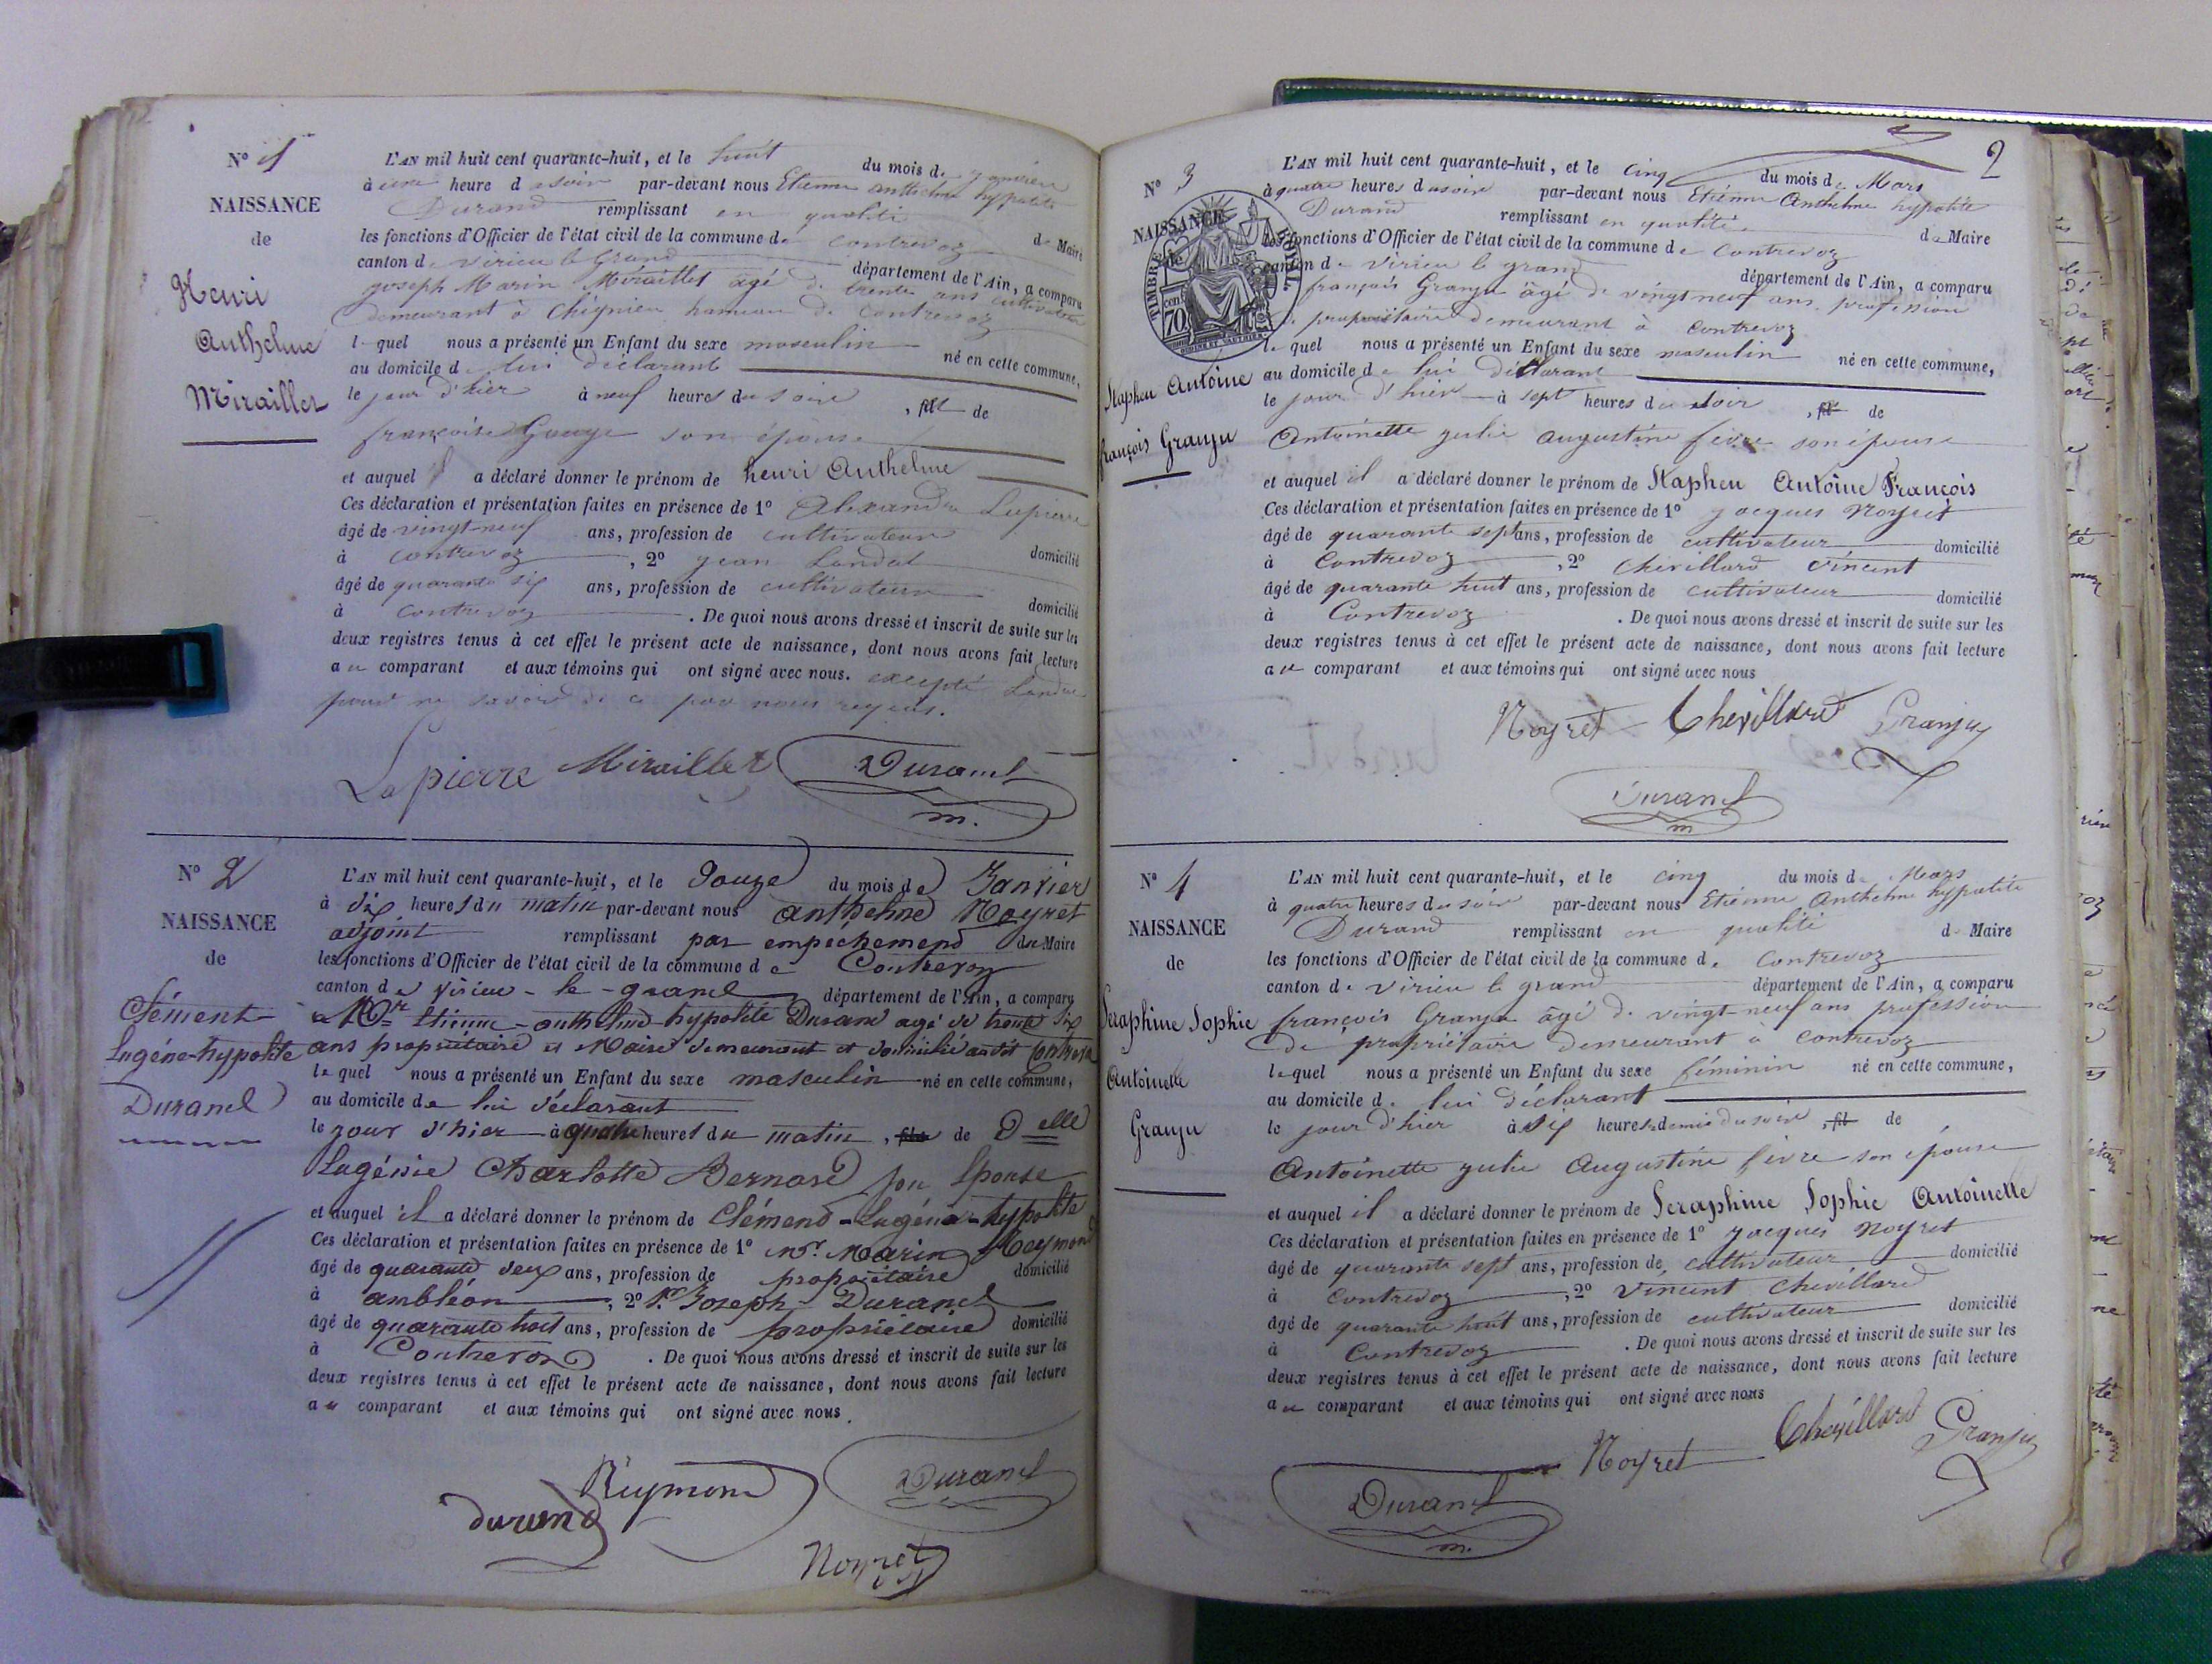 N° 1
NAISSANCE
de
Henri
Anthelme
Miraillet
L'AN mil huit cent quarante-huit, et le huit du mois de janvier
à une heure du soir par-devant nous Etienne anthelme hypolite
Durand remplissant en qualité de Maire
les fonctions d'Officier de l'état civil de la commune de contrevoz
canton de virieu le Grand département de l'Ain, a comparu
joseph Marin Miraillet âgé de trente ans cultivateur
demeurant à Chignieu hameau de Contrevoz
lequel nous a présenté un Enfant du sexe masculin né en cette commune,
au domicile de lui déclarant
le jour d'hier à neuf heures du soir, fils de
françoise son épouse
et auquel il a déclaré donner le prénom de henri Anthelme
Ces déclaration et présentation faites en présence de 1° Alexandre Lapierre
âgé de vingt-neuf ans, profession de cultivateur domicilié
à contrevoz, 2° jean Landet
âgé de quarante six ans, profession de cultivateur domicilié
à Contrevoz. De quoi nous avons dressé et inscrit de suite sur les
deux registres tenus à cet effet le présent acte de naissance, dont nous avons fait lecture
au comparant et aux témoins qui ont signé avec nous. excepté Landet
pour ne savoir de ce par nous requis.
Lapierre Miraillet Durand
m.
N° 2
NAISSANCE
de
Clément
Eugène-hypolite
Durand
L'AN mil huit cent quarante-huit, et le Douze du mois de Janvier
à dix heures du matin par-devant nous anthelme Noyret
adjoint remplissant par empechement du Maire
les fonctions d'Officier de l'état civil de la commune de Contrevoz
canton de virieu-le-grand département de l'Ain, a comparu
Mr Etienne-anthelme-hypolite Durand agé de trente six
ans propriétaire et Maire demeurant et domicilié audit Contrevoz
lequel nous a présenté un Enfant du sexe masculin né en cette commune,
au domicile de lui déclarant
le jour d'hier à quatre heures du matin, fils de Delle
Eugénie Charlotte Bernard son Epouse
et auquel il a déclaré donner le prénom de Clémend-Eugène-hypolite
Ces déclaration et présentation faites en présence de 1° Mr. Marin Reymond
âgé de quarante deux ans, profession de propriétaire domicilié
à ambléon, 2° Joseph Durand
âgé de quarante huit ans, profession de propriétaire domicilié
à Contrevoz. De quoi nous avons dressé et inscrit de suite sur les
deux registres tenus à cet effet le présent acte de naissance, dont nous avons fait lecture
au comparant et aux témoins qui ont signé avec nous.
Reymond Durand
durand
Noyret
2
N° 3
NAISSANCE
de
TIMBRE ROYAL
70 cen
Staphen Antoine
françois Granju
L'AN mil huit cent quarante-huit, et le cinq du mois de Mars
à quatre heures du soir par-devant nous Etienne Anthelme hypolite
Durand remplissant en qualité de Maire
les fonctions d'Officier de l'état civil de la commune de contrevoz
canton de virieu le grand département de l'Ain, a comparu
françois Granju âgé de vingt neuf ans profession
de propriétaire demeurant à contrevoz
lequel nous a présenté un Enfant du sexe masculin né en cette commune,
au domicile de lui déclarant
le jour d'hier à sept heures du soir, fils de
Antoinette julie augustine fivre son épouse
et auquel il a déclaré donner le prénom de Staphen Antoine François
Ces déclaration et présentation faites en présence de 1° jacques Noyret
âgé de quarante sept ans, profession de cultivateur domicilié
à Contrevoz, 2° Chevillard vincent
âgé de quarante huit ans, profession de cultivateur domicilié
à Contrevoz. De quoi nous avons dressé et inscrit de suite sur les
deux registres tenus à cet effet le présent acte de naissance, dont nous avons fait lecture
au comparant et aux témoins qui ont signé avec nous
Noyret Chevillard Granju
Durand
m
N° 4
NAISSANCE
de
Seraphine Sophie
Antoinette
Granju
L'AN mil huit cent quarante-huit, et le cinq du mois de Mars
à quatre heures du soir par-devant nous Etienne Anthelme hypolite
Durand remplissant en qualité de Maire
les fonctions d'Officier de l'état civil de la commune de contrevoz
canton de virieu le grand département de l'Ain, a comparu
françois Granju âgé de vingt-neuf ans profession
de propriétaire demeurant à contrevoz
lequel nous a présenté un Enfant du sexe féminin né en cette commune,
au domicile de lui déclarant
le jour d'hier à six heures & demie du soir, fil de
Antoinette julie Augustine fivre son épouse
et auquel il a déclaré donner le prénom de Seraphine Sophie Antoinette
Ces déclaration et présentation faites en présence de 1° jacques Noyret
âgé de quarante sept ans, profession de cultivateur domicilié
à Contrevoz, 2° vincent chevillard
âgé de quarante huit ans, profession de cultivateur domicilié
à Contrevoz. De quoi nous avons dressé et inscrit de suite sur les
deux registres tenus à cet effet le présent acte de naissance, dont nous avons fait lecture
au comparant et aux témoins qui ont signé avec nous
Noyret Chevillard Granju
Durand
m.